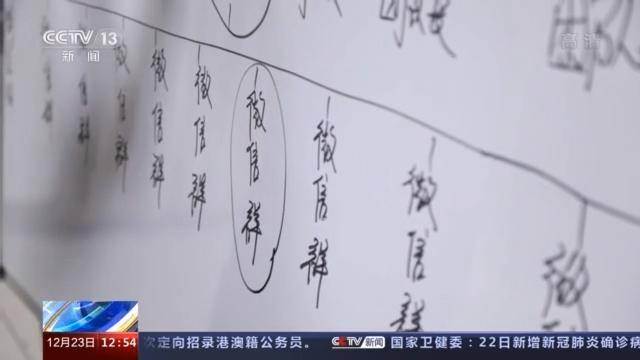 CCTV 13
新闻
高清
微信群
微信群
微信群
微信群
微信群
微信群
微
12月23日 12:54
次定向招录港澳籍公务员。 CCTV新闻 国家卫健委：22日新增新冠肺炎确诊病